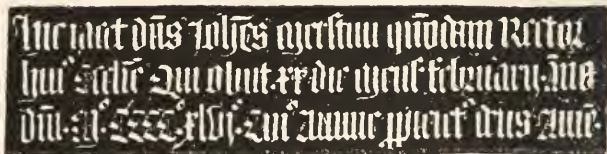 Hic iacet dn̄s Joh̄es Merstun quōdam Rector
hui᷒ Ecclie Qui obiit xx die Mens̄ Februarii Anº
dn̄i Mº CCCCº xlviº Cui᷒ Anime ppiciet᷒ deus Amē